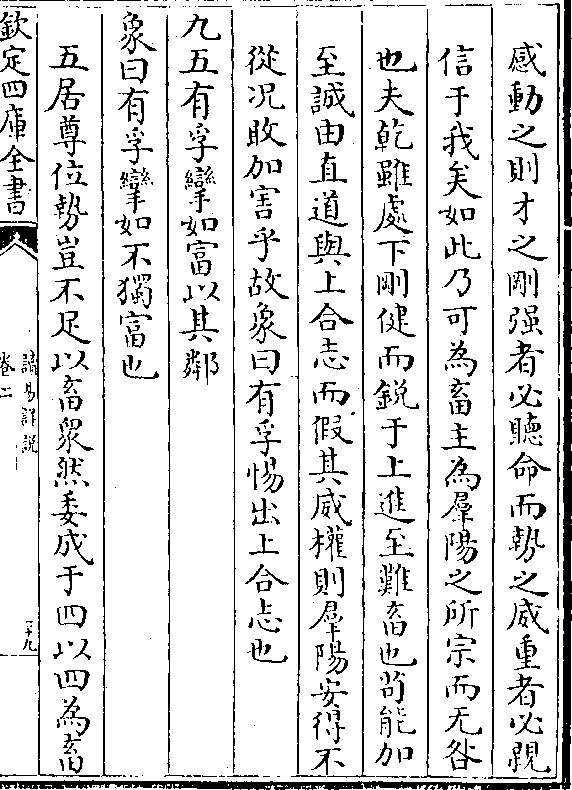 感動之則才之剛强者必聽命而勢之威重者必親
信于我矣如此乃可為畜主為羣陽之所宗而无咎
也夫乾雖處下剛健而鋭于上進至難畜也苟能加
至誠由直道與上合志而假其威權則羣陽安得不
從况敢加害乎故象曰有孚惕出上合志也
九五有孚攣如富以其鄰
象曰有孚攣如不獨富也
五居尊位勢豈不足以畜衆然委成于四以四為畜
欽定四庫全書
讀易詳説
卷二
二十九